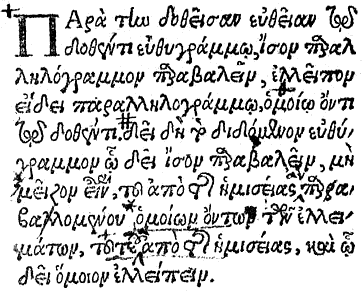 Παρὰ τὴν δοθεῖσαν εὐθεῖαν τῷ
δοθέντι εὐθυγράμμῳ, ἴσον παραλ
ληλόγραμμον παραβαλεῖν, ἐλλεῖπον
εἴδει παραλληλογράμμῳ, ὁμοίῳ ὄντι
τῷ δοθέντι. δεῖ δὴ τὸ διδόμενον εὐθύ
γραμμον ᾧ δεῖ ἴσον παραβαλεῖν, μὴ
μεῖζον εἶναι, τοῦ ἀπὸ τῆς ἡμισείας παρα
βαλλομένου ὁμοίων ὄντων τῶν ἐλλει
μάτων, τοῦ τε ἀπὸ τῆς ἡμισείας, καὶ ᾧ
δεῖ ὅμοιον ἐλλείπειν.